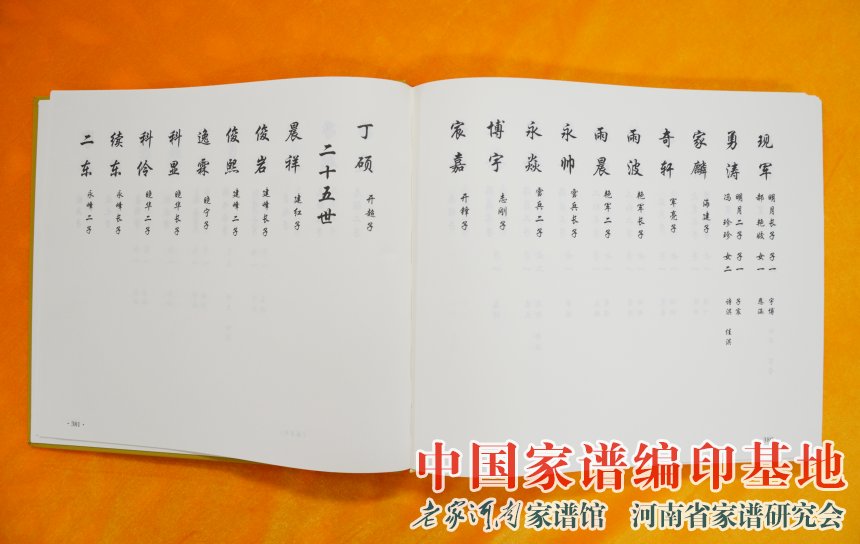 现军 明月长子 子一 宇博
郝艳改 女一 慈涵
勇涛 明月二子 子一 子宸
冯珍珍 女二 诗淇 佳淇
家麟 海建子
奇轩 军亮子
雨波 艳军长子
雨晨 艳军二子
永帅 雷兵长子
永焱 雷兵二子
博宇 志刚子
宸嘉 开锋子
丁硕 开超子
二十五世
晨祥 建红子
俊岩 建峰长子
俊熙 建峰二子
逸霖 晓宁子
科显 晓华长子
科伶 晓华二子
续东 永峰长子
二东 永峰二子
·381·
中国家谱编印基地
老家河南家谱馆 河南省家谱研究会